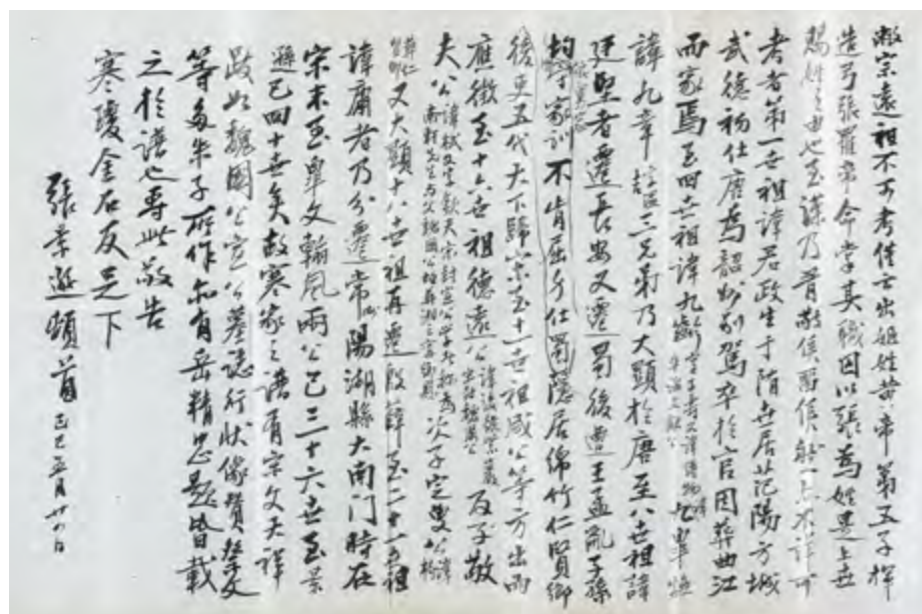 敝宗遠祖不可考僅云出姬姓黄帝第五子揮
造弓張羅帝命掌其職因以張為姓遠上世
賜姓之由也至漢乃有敬侯留侯然上不詳可
考者第一世祖諱君政生于隋世居范陽方城
武德初仕唐為韶州别駕卒於官因葬曲江
而家焉至四世祖諱九齡字子壽又諱博物
諱九章 三兄弟乃大顯於唐至八世祖諱
廷堅者遷長安又遷蜀後遭王孟亂子孫
均守家訓不肯屈于仕蜀隱居綿竹仁賢鄉
後更五代天下歸宋至十一世祖咸公等方出而
應徵至十六世祖德遠公諱浚 及子敬
夫公諱栻又字欽夫宋封宣公學者称為 次子定叟公諱杓
南軒先生与父魏國公
葬仁 又大顯十八世祖再遷 至二十一世祖
諱庸者乃分遷常州陽湖縣大南门時在
宋末至皐文翰風兩公已三十六世至景
遜已四十世矣故寒家之譜有宗文天祥
跋如魏國公宣公墓誌行狀像贊祭文
等多朱子所作亦有岳精忠題皆載
之於譜也專此敬告
寒瓊金石友足下
張景遜頓首己巳五月廿六日